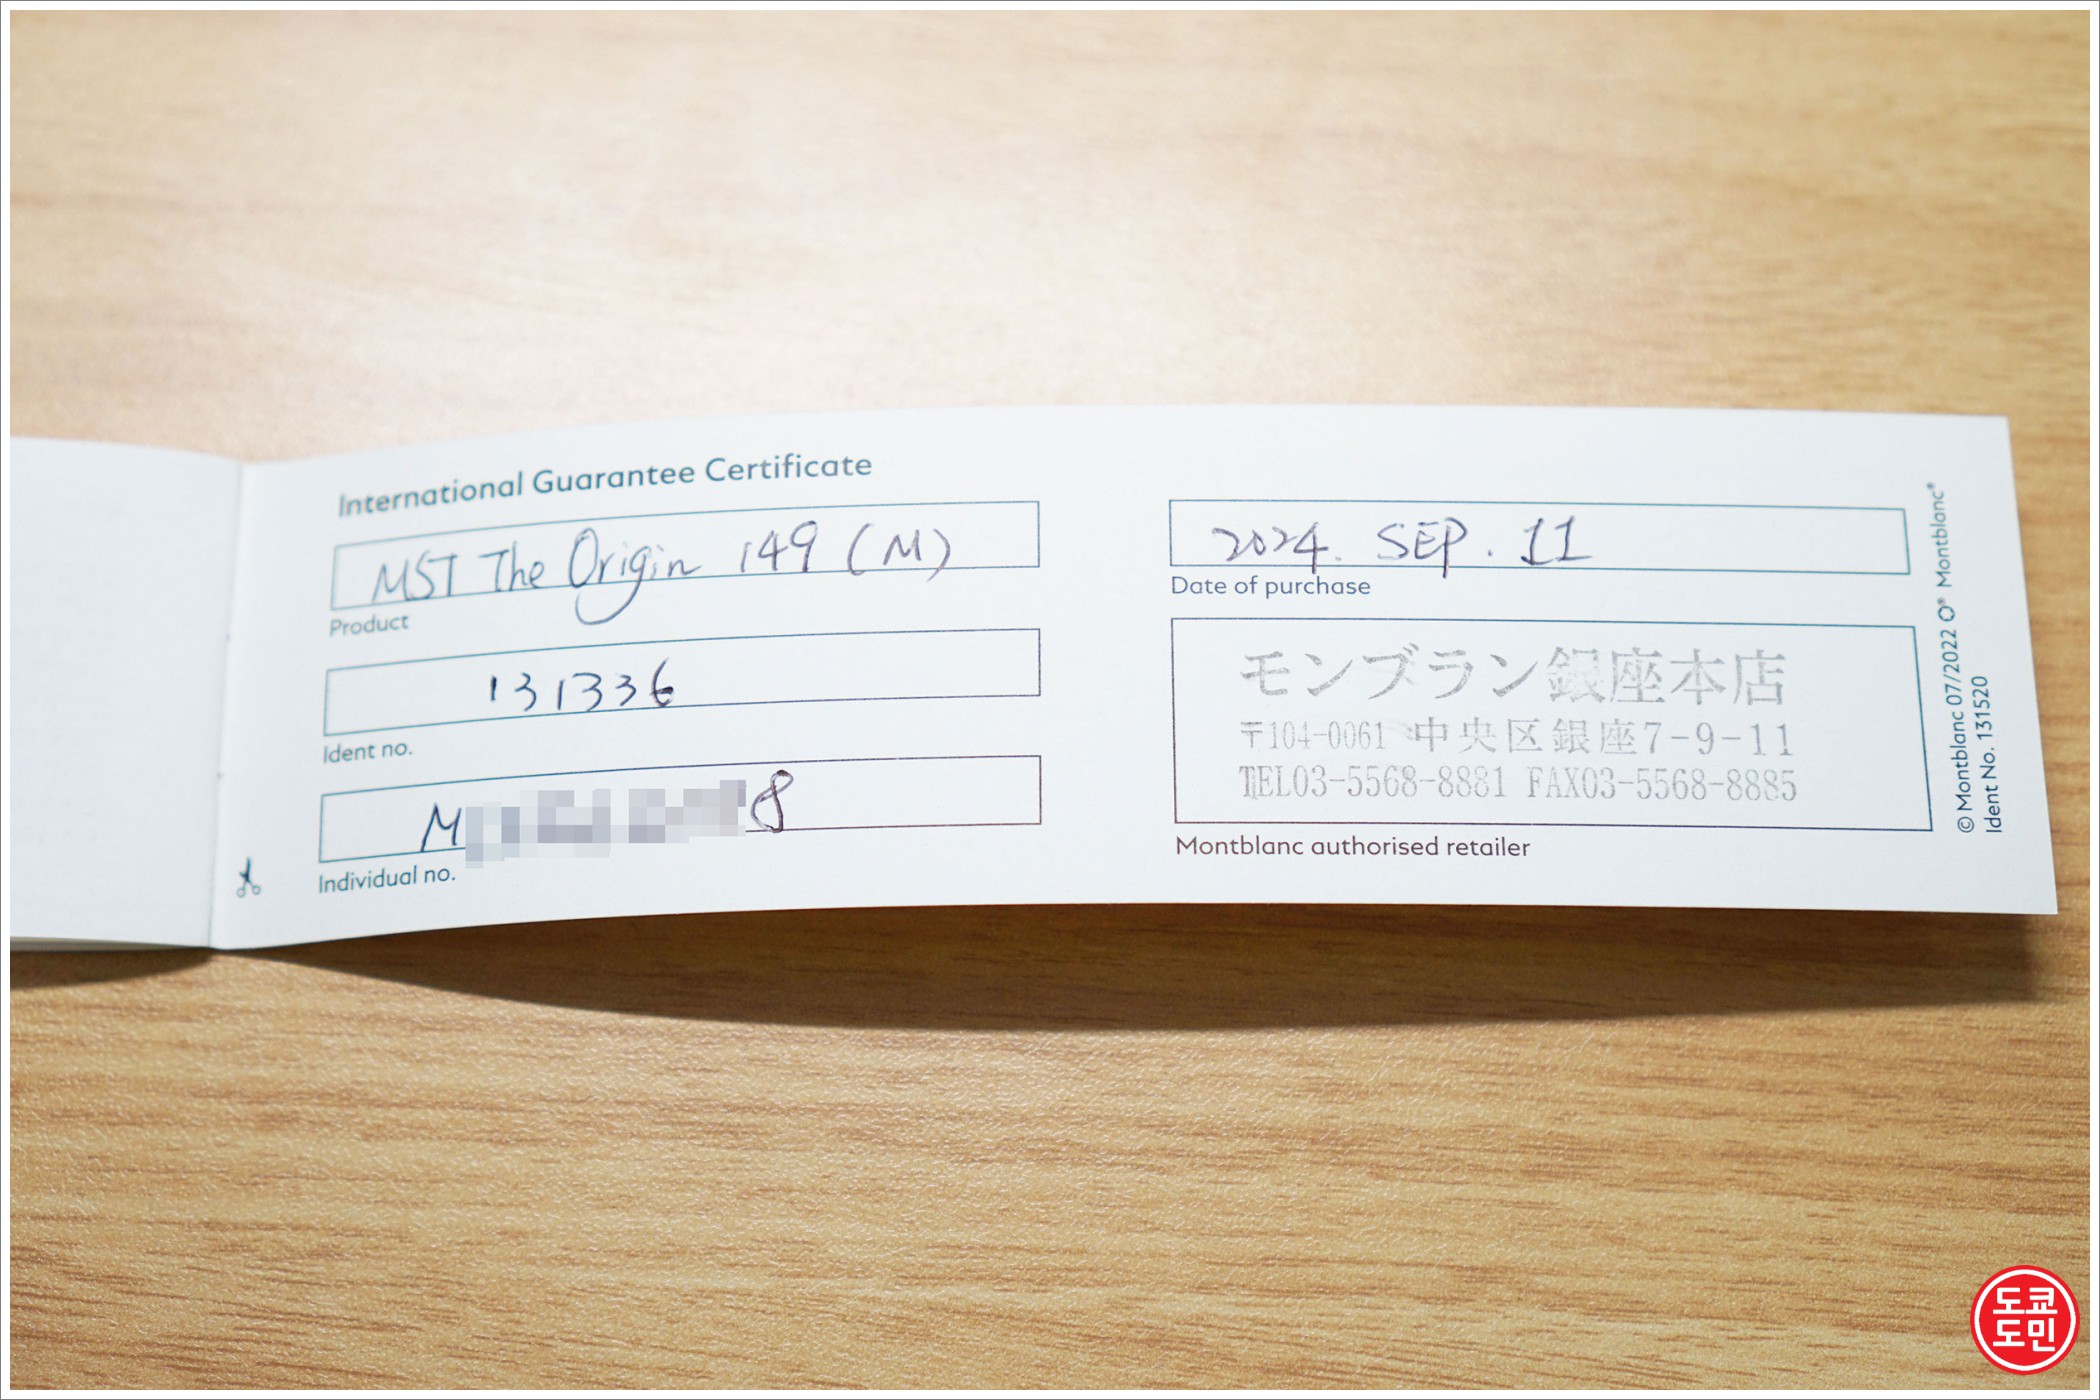 International Guarantee Certificate
MST The Origin 149 (M)
Product
131336
Ident no.
M 8
Individual no.
2024. SEP. 11
Date of purchase
モンブラン銀座本店
〒104-0061 中央区銀座7-9-11
TEL03-5568-8881 FAX03-5568-8885
Montblanc authorised retailer
© Montblanc 07/2022 Montblanc®
Ident No. 131520
도쿄
도민